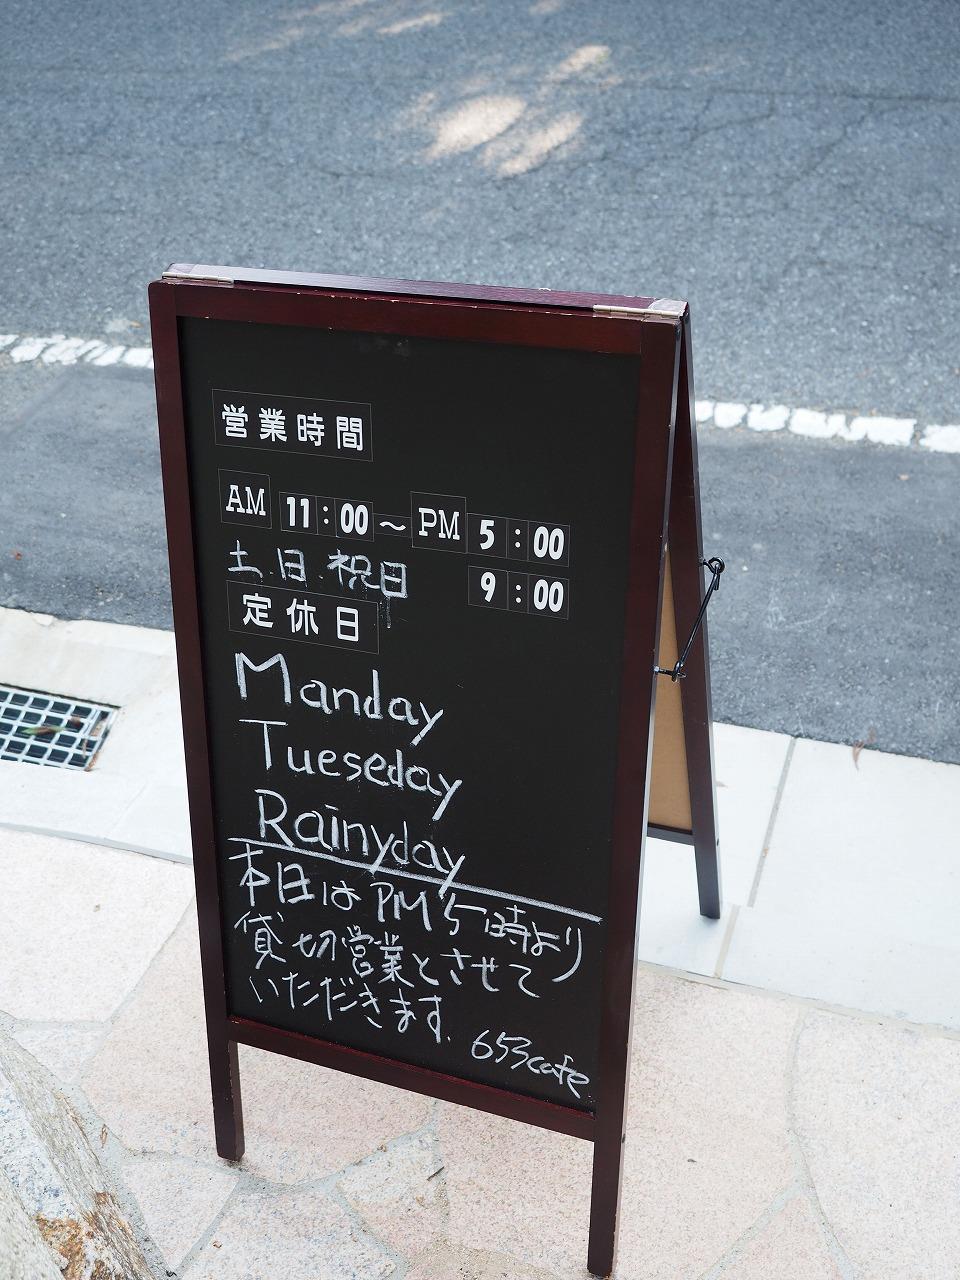 営業時間
AM 11:00～PM 5:00
土.日.祝日 9:00
定休日
Manday
Tueseday
Rainyday
本日はPM5時より
貸切営業とさせて
いただきます.
653cafe